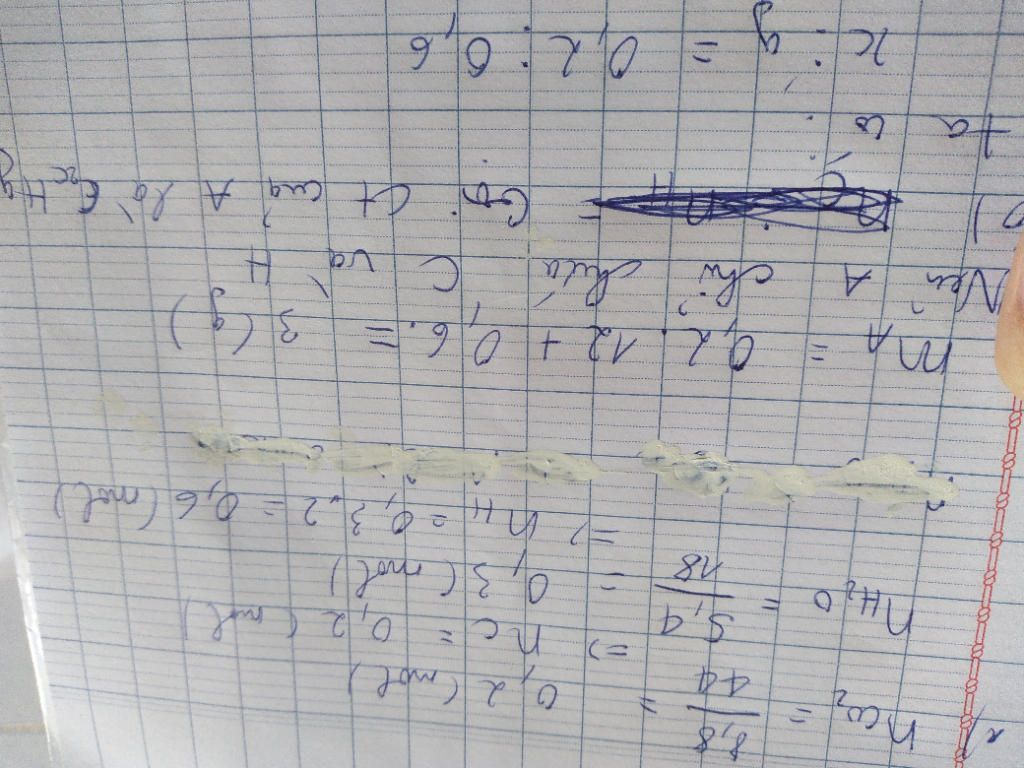 nCO2 = 8,8/44 = 0,2 (mol)
=> nC = 0,2 (mol)
nH2O = 5,4/18 = 0,3 (mol)
=> nH = 0,3.2 = 0,6 (mol)
mA = 0,2.12 + 0,6 = 3 (g)
Nên A chỉ chứa C và H
) Gọi Ct của A là CxHy
ta có :
x : y = 0,2 : 0,6